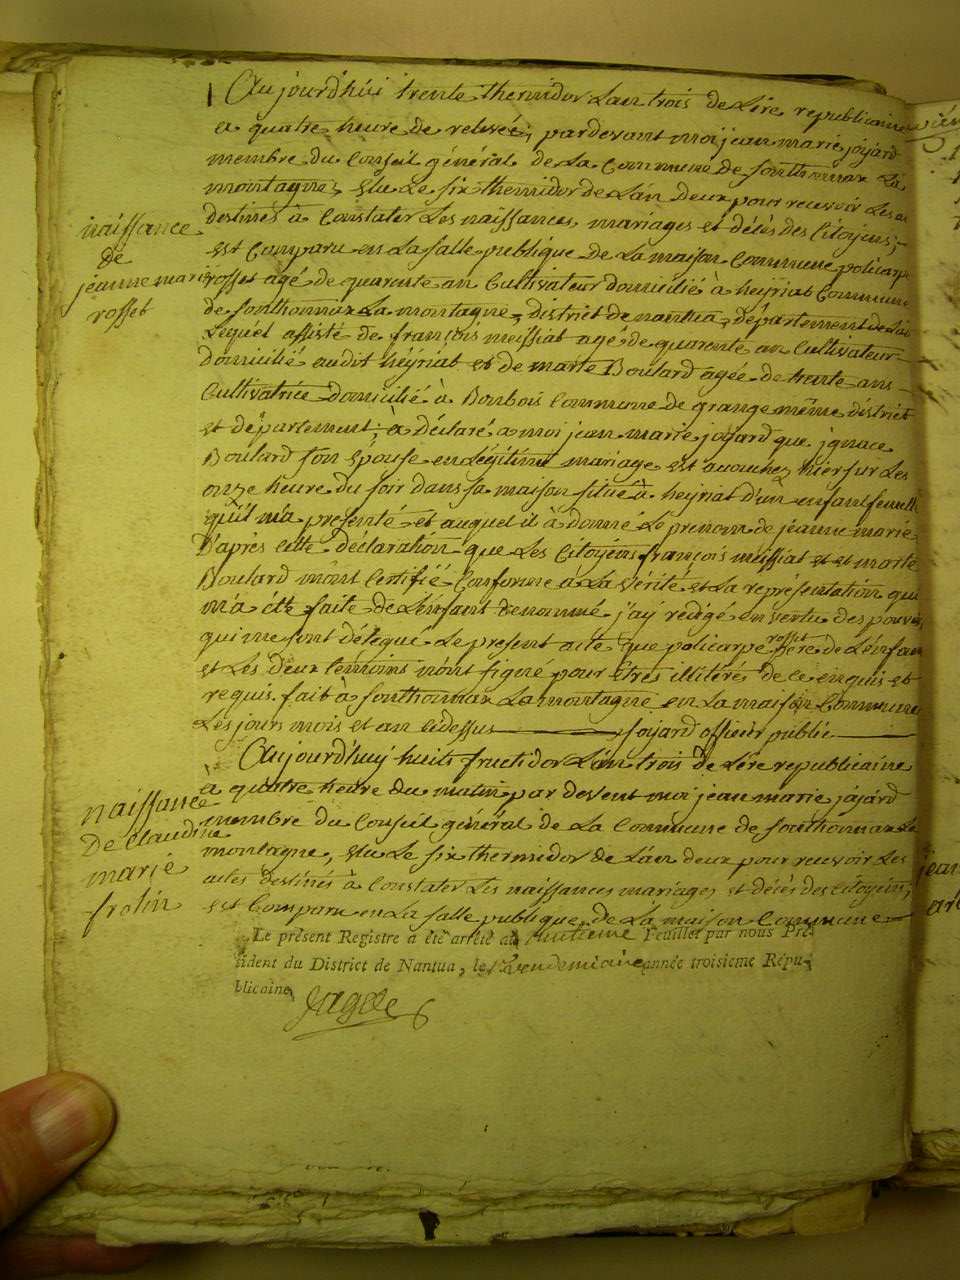 Aujourd'hui trente thermidor L'an trois de L'ére republicaine
a quatre heure de relevée, pardevant moi jean marie joyard
membre du Conseil général de La Commune de fonthonnax La
montagne, élu Le six thermidor de L'an deux pour recevoir Les
destinés à Constater Les naissances, mariages et décès des Citoyens;
naissance
de
jeanne marie
rosset
est Comparu en La salle publique de La maison Commune policarpe
rosset agé de quarente an Cultivateur domicilié à heyriat Commune
de fonthonnax La montagne, district de nantua, département de L'ain
Lequel assisté de françois meissiat agé de quarente an Cultivateur
domicilié audit heyriat et de marte Boulard agée de trente ans
Cultivatrice domicilié à Bonbois Commune de grange même district
et département, à déclaré a moi jean marie joyard que jgnace
Boulard son épouse en Légitime mariage est acouchez hier sur Les
onze heure du soir dans sa maison situé à heyriat d'un enfant femelle
qu'il m'a presenté et auquel il à donné Le prenom de jeanne marie
D'après cette déclaration que Les Citoyens françois meissiat et et marte
Boulard m'ont Certifié Conforme à La vérité et La représentation qui
m'a été faite de L'enfant denommé j'ay redigé en vertu des pouvoirs
qui me sont délegué Le present acte que policarpe rosset père de L'enfant
et Les deux temoins n'ont signé pour êtres illitérés de ce enquis et
requis. fait à fonthonnax La montagne en La maison Commune
Les jours mois et an cidessus joyard officier public
Aujourd'huy huit fructidor L'an trois de L'ére republicaine
à quatre heure du matin par devent moi jean marie joyard
naissance
De claudine
marie
frolin
membre du Conseil général de La Commune de fonthonnax La
montagne, élu Le six thermidor de L'an deux pour recevoir Les
actes destinés à Constater Les naissances mariages et décès des citoyens;
est Comparu en La salle publique de La maison Commune
Le présent Registre a été arrêté au huitieme Feuillet par nous Pré-
sident du District de Nantua, le Vendemiaire année troisieme Répu-
blicaine